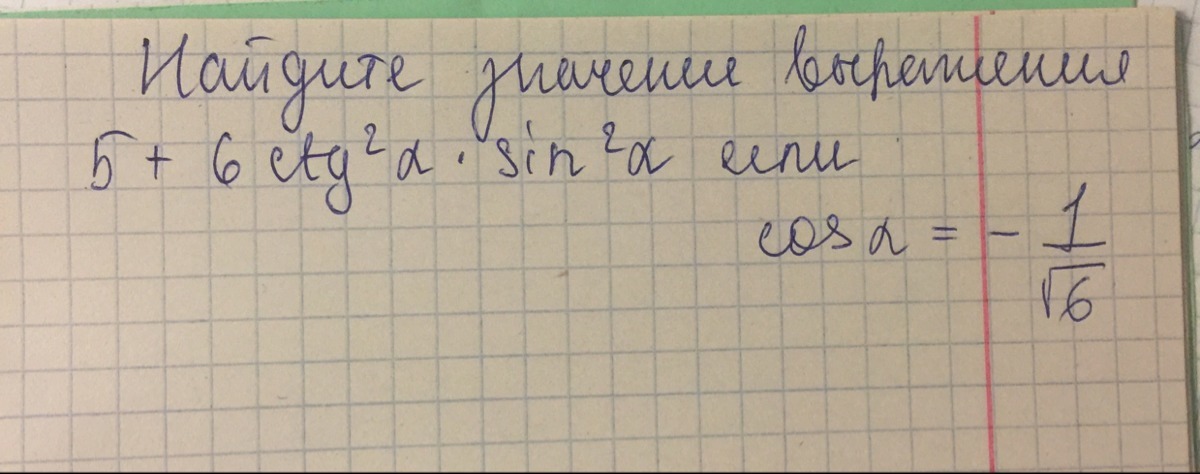 Найдите значение выражения
5 + 6 ctg²α · sin²α если
cos α = - 1/√6